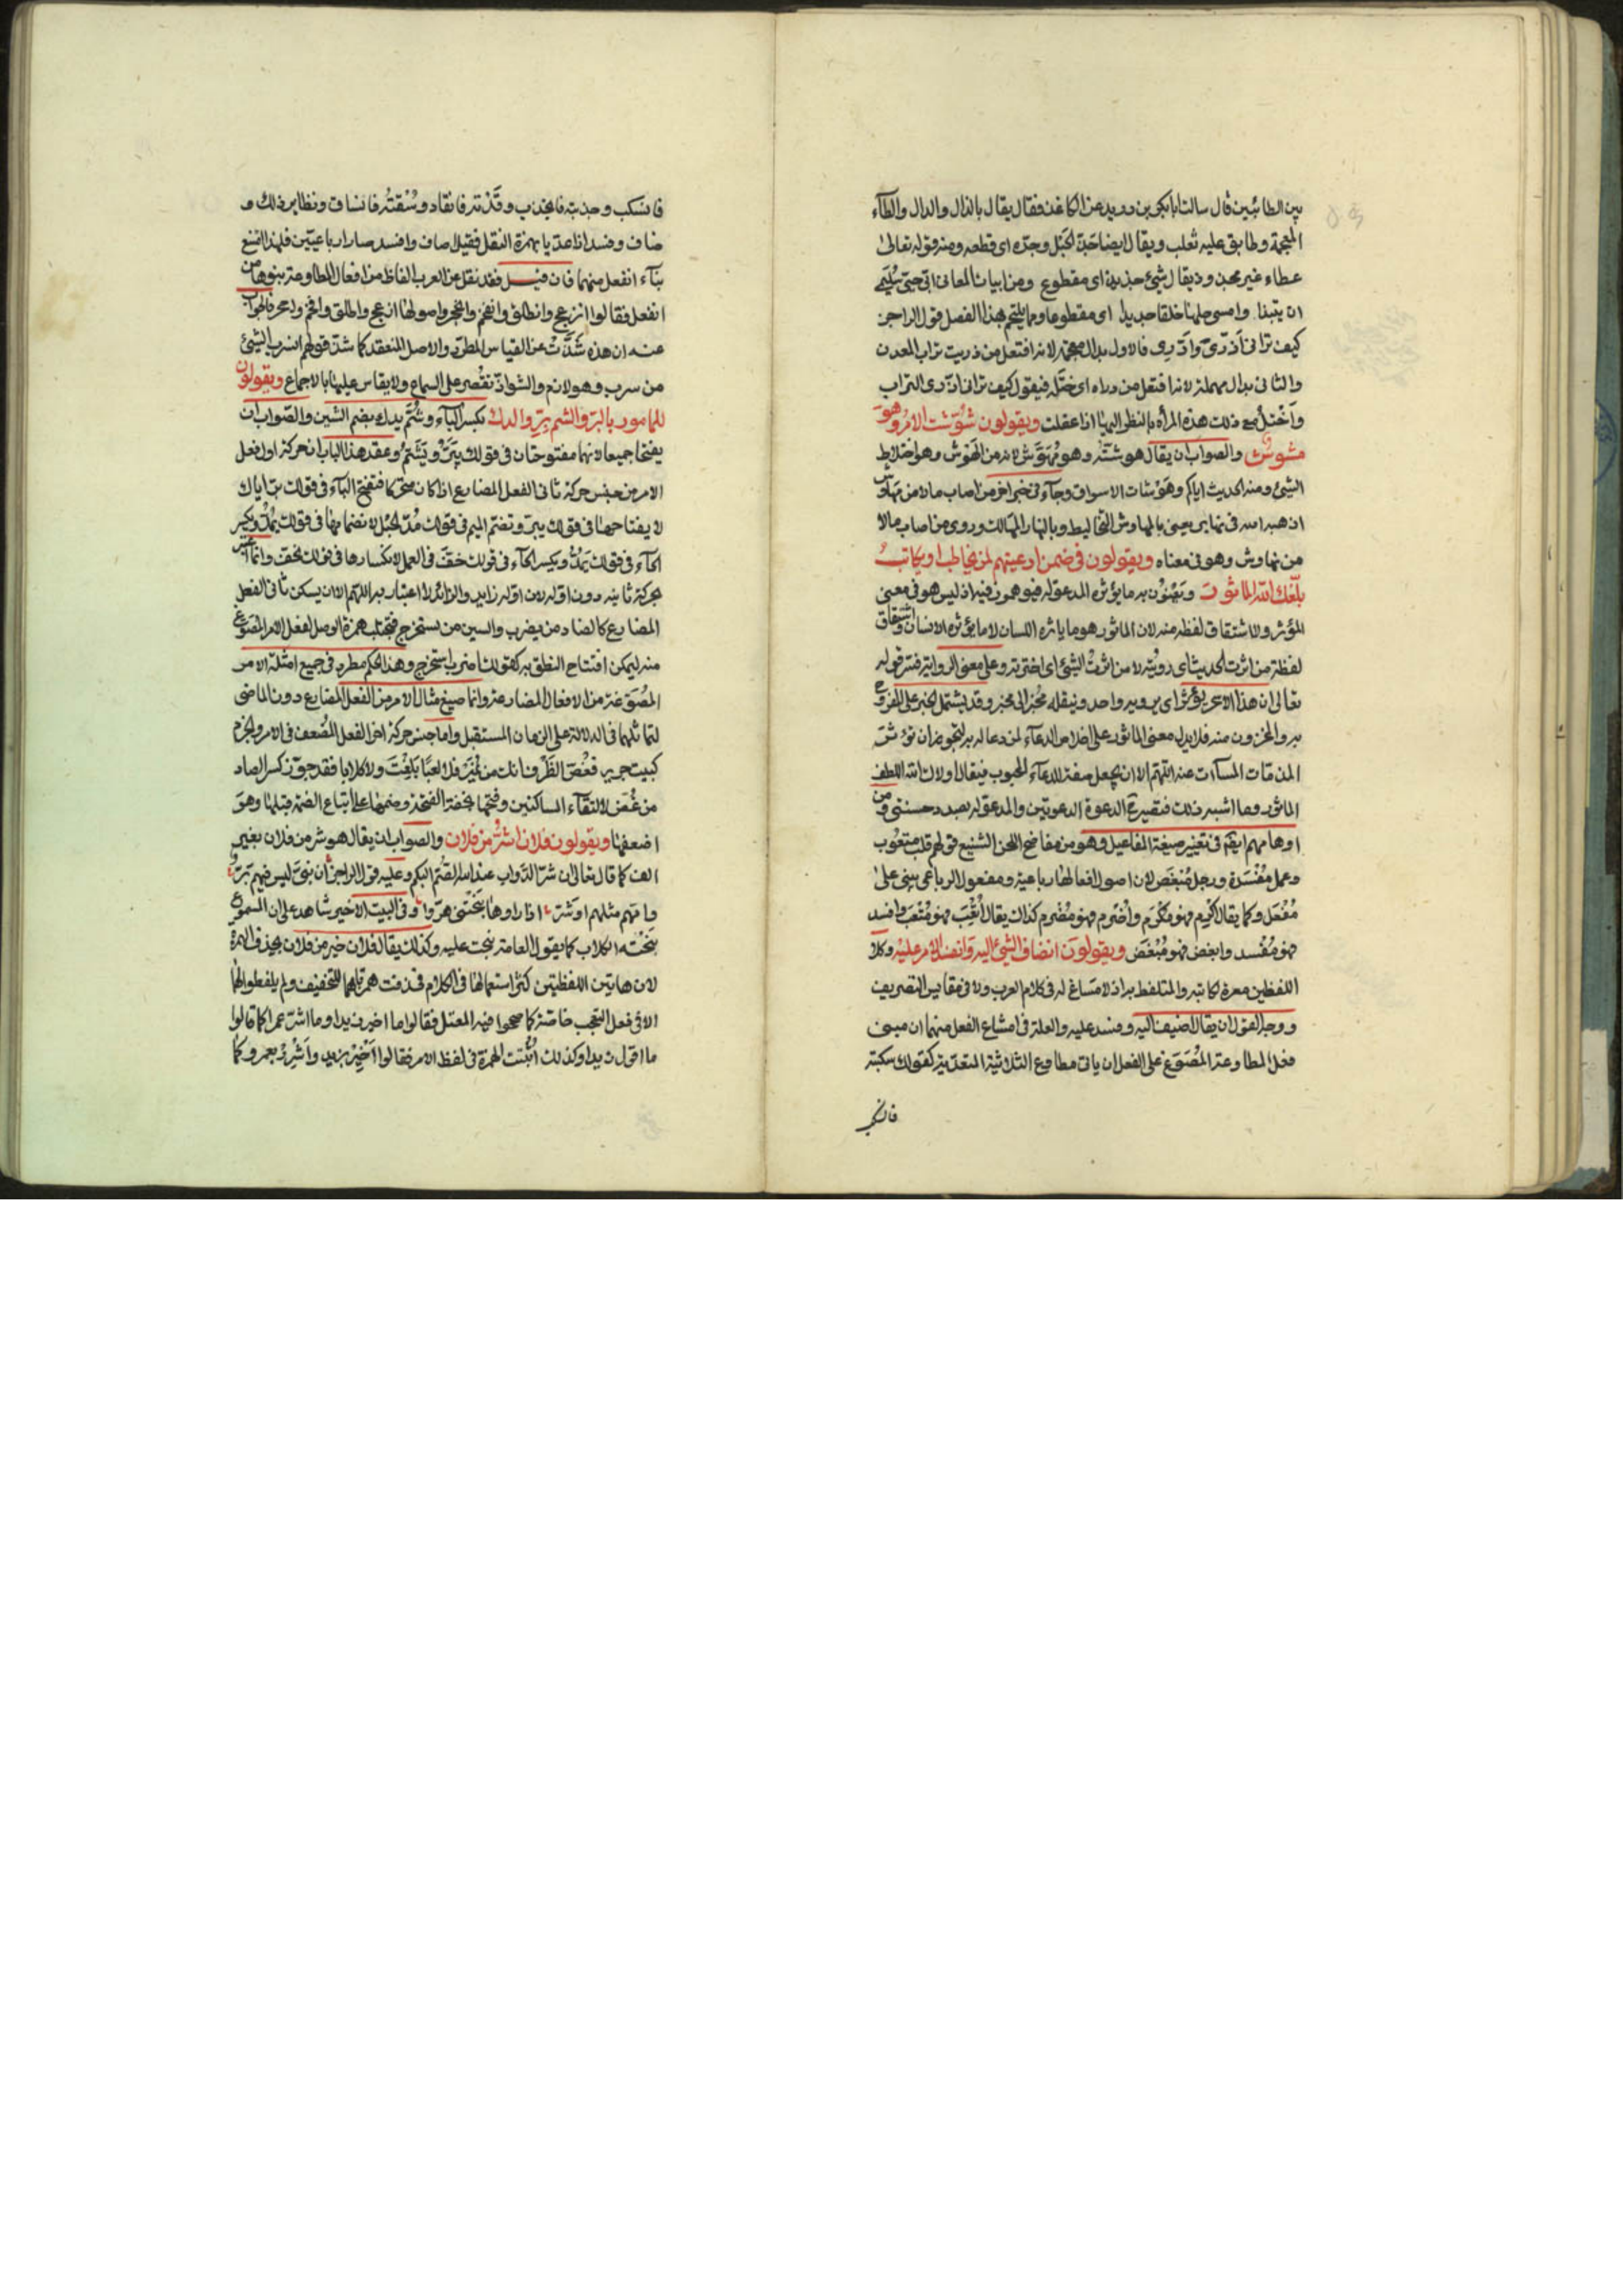 بين الطائيين قال سالت ابا بكر بن دريد عن الكاغد فقال يقال بالذال والدال والظآء
المعجمة وطابق عليه ثعلب ويقال ايضا جذ الحبل وجدّه اى قطعه ومنه قوله تعالى
عطاء غير مجذوذ يقال شيئ جديد اى مقطوع ومن ابيات المعانى ابى حبى سليمى
ان يبيدا وامسى حبلها خلقا جديدا اى مقطوعا ومما يلتحم بهذا الفصل قول الراجز
كيف ترانى اذّرى وادّرى فالاول بذال معجمة لانه افتعل من ذريت تراب المعدن
والثانى بدال مهملة لانه افتعل من دراه اى ختله فيقول كيف ترانى اذرى التراب
واختل مع ذلك هذه المرأة بالنظر اليها اذا غفلت ويقولون شوّشت الامر وهو
مشوش والصواب ان يقال هوشته وهو مهوّش لانه من الهوش وهو اختلاط
الشيئ ومنه الحديث اياكم وهوشات الاسواق وجآء فى خبر اخر من اصاب مالا من مهاوش
اذهبه الله فى نهابر يعنى بالمهاوش التخاليط وبالنهابر المهالك وروى من اصاب مالا
من نهاوش وهو فى معناه ويقولون فى ضمن ادعيتهم لمن يخاطب او يكاتب
بلّغك الله الماثور ويعنون به ما يؤثره المدعو له فيوهمون فيه اذ ليس هو فى معنى
المؤثر ولا اشتقاق لفظه منه لان الماثور هو ما ياثره اللسان لا ما يؤثره الانسان واشتقاق
لفظة من اثرت الحديث اى رويته لا من اثرت الشيئ اى اخترته وعلى معنى الرواية فسر قوله
تعالى ان هذا الا سحر يؤثر اى يرويه واحد وينقله مخبر الى مخبر وقد يشتمل الخبر على المفروح
به والمحزون منه فلا يدل معنى الماثور على اخلاص الدعآء لمن دعا له به لتجويز ان تؤثر
المذقات المسآت عنه اللهم الا ان يجعل صفة للدعآء المحبوب فيقال اولاك الله اللطف
الماثور وما اشبه ذلك فتصير ح الدعوة الدعوتين والمدعو له بصدد حسنتين ومن
اوهامهم ايضا فى تغيير صيغة المفاعيل وهو من مفاضح اللحن الشنيع قولهم قلب متعوب
وعمل مفسود ورجل مبغوض لان اصول افعالها رباعية ومفعول الرباعى يبنى على
مُفعَل وكما يقال اكرم فهو مكرم واضرم فهو مضرم كذلك يقال اتعب فهو متعب وافسد
فهو مفسد وابغض فهو مبغض ويقولون انضاف الشيئ اليه وانفسد الامر عليه وكلا
اللفظين معرة لكاتبه والمتلفظ به اذ لا مساغ له فى كلام العرب ولا فى مقاييس التصريف
ووجه القول ان يقال اضيف اليه وفسد عليه والعلة فى امتناع الفعل منهما ان مبنى
فعل المطاوعة المصوغ على انفعل ان ياتى مطاوع الثلاثية المتعدية كقولك سكبته
فانسكب
فانسكب وجذبته فانجذب وقدته فانقاد وسقته فانساق ونظاير ذلك و
ضاف وفسد اذا عديا بهمزة النقل فقيل اضاف وافسد صارا رباعيين فلهذا امتنع
بنآء انفعل منهما فان قيل فقد نقل عن العرب الفاظ من افعال المطاوعة بنوها من
انفعل فقالوا انزعج وانطلق وانفحم وانحجر واصولها ازعج واطلق وافحم واحجر فالجواب
عنه ان هذه شذّت عن القياس المطرد والاصل المنعقد كما شذ قولهم انسرب الشيئ
من سرب وهو لازم والشواذ تقصر على السماع ولا يقاس عليها بالاجماع ويقولون
للمامور بالبر والشم بر والدك بكسر البآء وشُم يدك بضم الشين والصواب ان
يفتحا جميعا لانهما مفتوحتان فى قولك يبر ويشم وعقد هذا الباب ان حركة اول فعل
الامر من جنس حركة ثانى الفعل المضارع اذا كان متحركا فتفتح البآء فى قولك بر اباك
لانفتاحها فى قولك يبر وتضم الميم فى قولك مد الحبل لانضمامها فى قولك يمد وتكسر
الخآء فى قولك خف فى العمل لانكسارها فى قولك يخف وانما اعتبر
بحركة ثانيه دون اوله لان اوله زايد والزائد لا اعتبار به اللهم الا ان يسكن ثانى الفعل
المضارع كالضاد من يضرب والسين من يستخرج فتجتلب همزة الوصل لفعل الامر المصوغ
منه ليمكن افتتاح النطق به كقولك اضرب استخرج وهذا الحكم مطرد فى جميع امثلة الامر
المصوغة من الافعال المضارعة وانما صيغ مثال الامر من الفعل المضارع دون الماضى
لتماثلهما فى الدلالة على الزمان المستقبل واما جنس حركة اخر الفعل المضعف فى الامر والجزم
كبيت جرير فغض الطرف انك من نمير فلا كعبا بلغت ولا كلابا فقد جوز كسر الضاد
من غض لالتقآء الساكنين وفتحها لخفة الفتحة وضمها على اتباع الضمة قبلها وهو
اضعفها ويقولون فلان اشر من فلان والصواب ان يقال هو شر من فلان بغير
الف كما قال تعالى ان شر الدواب عند الله الصم البكم وعليه قول الراجز ان بنى ليس فيهم بر
وامهم مثلهم او شر اذا راوها نبحتنى هروا وفى البيت الاخير شاهد على ان المسموع
نبحته الكلاب كما يقول العامة نبحت عليه وكذلك يقال فلان خير من فلان بحذف الهمزة
لان هاتين اللفظتين كثر استعمالها فى الكلام فحذفت همزتاهما للتخفيف ولم يلفظوا بها
الا فى فعل التعجب خاصة كما صححوا فيه المعتل فقالوا ما اخير زيدا وما اشر عمرا كما قالوا
ما اقول زيدا وكذلك اثبتت الهمزة فى لفظ الامر فقالوا اخير بزيد واشرر بعمرو كما